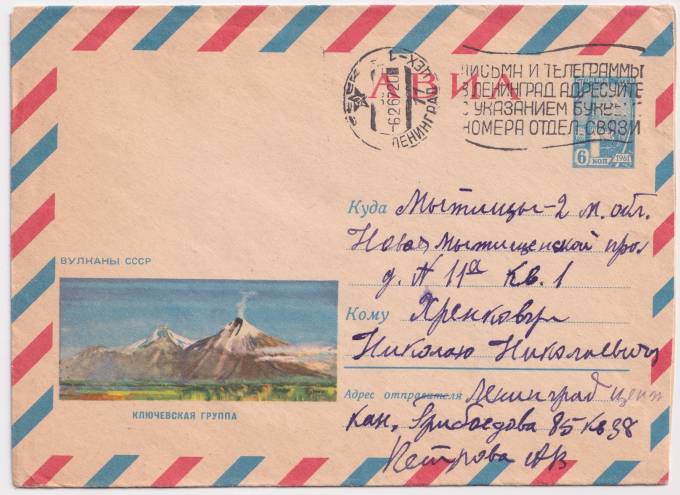 АВИА
ЛЕНИНГРАД
ПИСЬМА И ТЕЛЕГРАММЫ
В ЛЕНИНГРАД АДРЕСУЙТЕ
С УКАЗАНИЕМ
НОМЕРА ОТДЕЛ. СВЯЗИ
6 КОП 1961
Куда Мытищи-2 м. обл.
Ново Мытищенской про
д. N 11а кв. 1
Кому
Николаю Николаевичу
ВУЛКАНЫ СССР
КЛЮЧЕВСКАЯ ГРУППА
Адрес отправителя Ленинград центр
кан. Грибоедова 85 кв 38
Петрова АВ